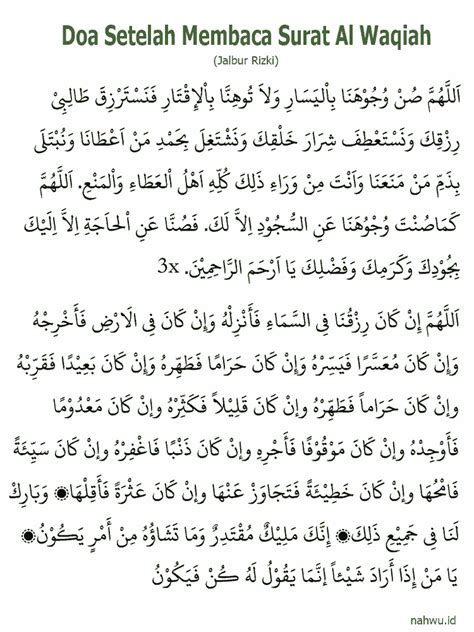 Doa Setelah Membaca Surat Al Waqiah
(Jalbur Rizki)
اَللَّهُمَّ صُنْ وُجُوْهَنَا بِاْليَسَارِ وَلاَ تُوهِنَّا بِاْلإِقْتَارِ فَنَسْتَرْزِقَ طَالِبِيْ
رِزْقِكَ وَنَسْتَعْطِفَ شِرَارَ خَلْقِكَ وَنَشْتَغِلَ بِحَمْدِ مَنْ اَعْطَانَا وَنُبْتَلَى
بِذَمِّ مَنْ مَنَعَنَا وَاَنْتَ مِنْ وَرَاءِ ذَلِكَ كُلِّهِ اَهْلُ اْلعَطَاءِ وَاْلمَنْعِ. اَللَّهُمَّ
كَمَاصُنْتَ وُجُوْهَنَا عَنِ السُّجُوْدِ اِلاَّ لَكَ. فَصُنَّا عَنِ اْلحاَجَةِ اِلاَّ اِلَيْكَ
بِجُوْدِكَ وَكَرَمِكَ وَفَضْلِكَ يَا اَرْحَمَ الرَّاحِمِيْنَ. 3x
اَللَّهُمَّ إِنْ كَانَ رِزْقُنَا فِى السَّمَاءِ فَأَنْزِلْهُ وَإِنْ كَانَ فِى الْاَرْضِ فَأَخْرِجْهُ
وَإِنْ كَانَ مُعَسَّرًا فَيَسِّرْهُ وَإِنْ كَانَ حَرَامًا فَطَهِّرْهُ وَإِنْ كَانَ بَعِيْدًا فَقَرِّبْهُ
وإن كَانَ حَرَاماً فَطَهِّرْهُ وإن كَانَ قَلِيْلاً فَكَثِّرْهُ وإن كَانَ مَعْدُوْمًا
فَأَوْجِدْهُ وإن كَانَ مَوْقُوْفًا فَأَجْرِهِ وإن كَانَ ذَنْبًا فَاغْفِرْهُ وإن كَانَ سَيِّئَةً
فَامْحُهَا وإن كَانَ خَطِيْئَةً فَتَجَاوَزْ عَنْهَا وإن كَانَ عَثْرَةً فَأَقِلْهَا۞ وَبَارِكْ
لَنَا فِى جَمِيْعِ ذَلِكَ۞ إِنَّكَ مَلِيْكٌ مُقْتَدِرٌ وَمَا تَشَاؤُهُ مِنْ أَمْرٍ يَكُوْنُ۞
يَا مَنْ إِذَا أَرَادَ شَيْئاً إِنَّمَا يَقُوْلُ لَهُ كُنْ فَيَكُوْنُ
nahwu.id